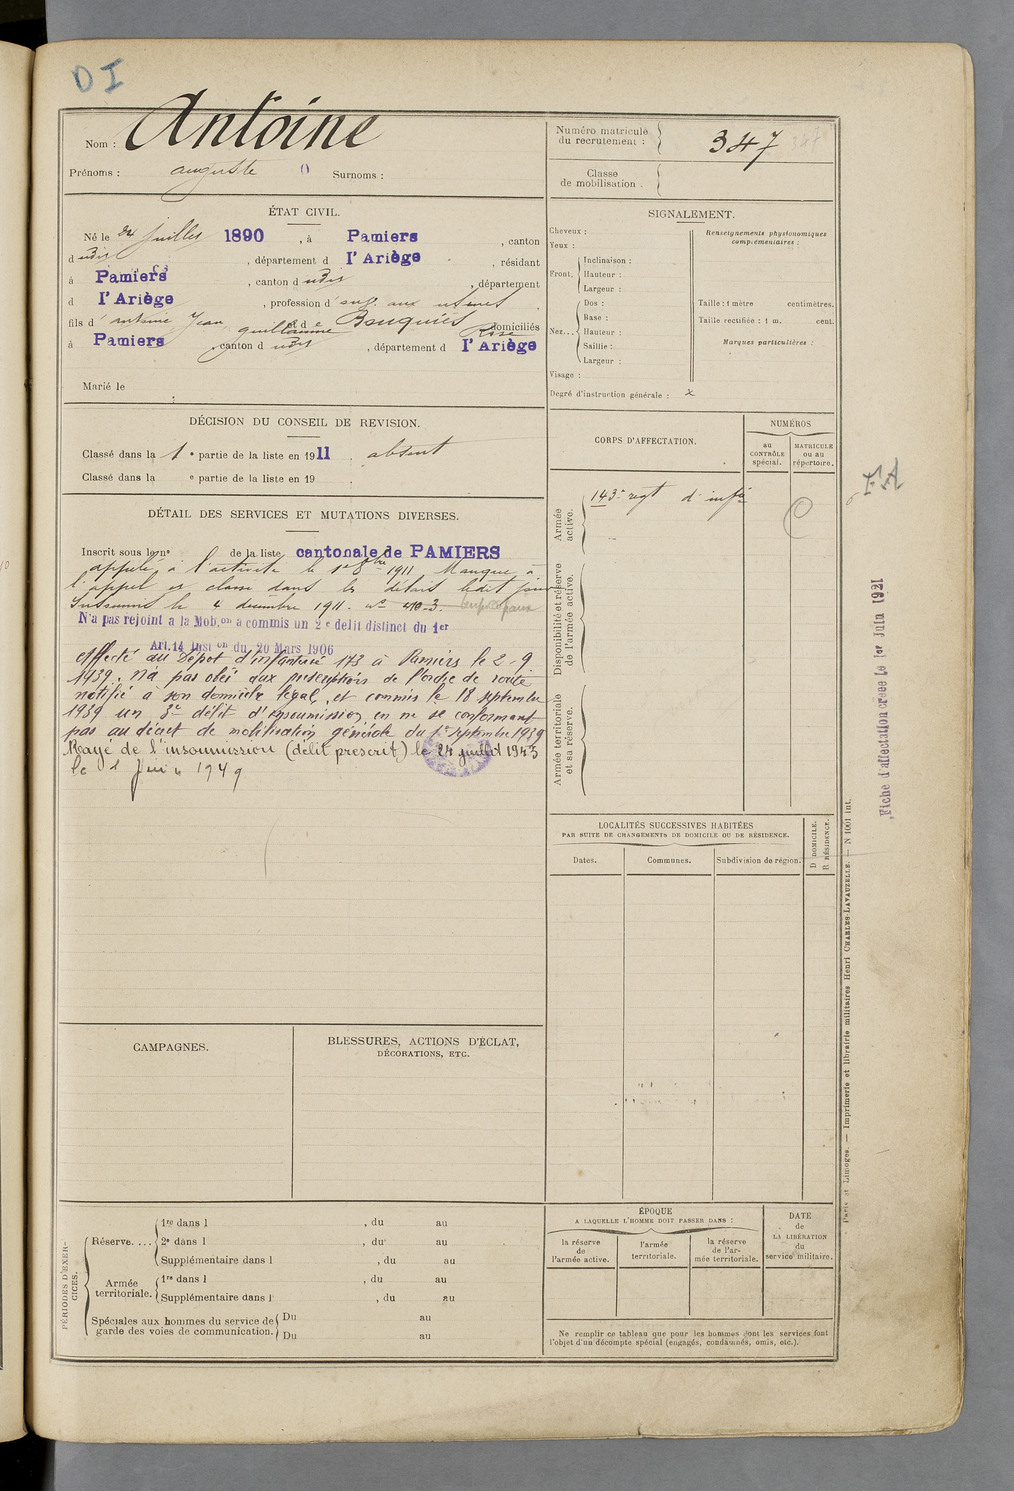 D I
Nom : Antoine
Prénoms : auguste Surnoms :
Numéro matricule du recrutement : 347
Classe de mobilisation .
ÉTAT CIVIL.
Né le 24 juillet 1890 , à Pamiers , canton
d udit , département d l'Ariège , résidant
à Pamiers , canton d udit , département
d l'Ariège , profession d emp. aux usines
fils d' antoine Jean guillaume et d e Bouquiés Rose domiciliés
à Pamiers , canton d udit , département d l'Ariège
Marié le
DÉCISION DU CONSEIL DE REVISION.
Classé dans la 1 e partie de la liste en 1911 . absent
Classé dans la e partie de la liste en 19
DÉTAIL DES SERVICES ET MUTATIONS DIVERSES.
Inscrit sous le nº de la liste cantonale de PAMIERS
appelé à l'activité le 1er 8bre 1911. Manque à
l'appel et classé dans les détails ledit jour
Insoumis le 4 décembre 1911. nº 410-3.
N'a pas rejoint à la Mob.on a commis un 2e délit distinct du 1er
Art. 14 Inst on du 20 Mars 1906
Affecté au Dépot d'infanterie 173 à Pamiers le 2-9
1939. N'a pas obéi aux prescriptions de l'ordre de route
notifié à son domicile légal, et commis le 18 septembre
1939 un 3e délit d'insoumission en ne se conformant
pas au décret de mobilisation générale du 1er septembre 1939
Rayé de l'insoumission (délit prescrit) le 24 juillet 1943
le 1 Juin 1949
SIGNALEMENT.
Cheveux :
Yeux :
Front. Inclinaison :
Hauteur :
Largeur :
Nez... Dos :
Base :
Hauteur :
Saillie :
Largeur :
Visage :
Renseignements physionomiques complémentaires :
Taille : 1 mètre centimètres.
Taille rectifiée : 1 m. cent.
Marques particulières :
Degré d'instruction générale : x
CORPS D'AFFECTATION.
NUMÉROS
au CONTRÔLE spécial.
MATRICULE ou au répertoire.
Armée active.
143e regt d'infie
Disponibilité et réserve de l'armée active.
Armée territoriale et sa réserve.
FA
Fiche d'affectation créée le 1er Juin 1921
LOCALITÉS SUCCESSIVES HABITÉES
PAR SUITE DE CHANGEMENTS DE DOMICILE OU DE RÉSIDENCE.
Dates.
Communes.
Subdivision de région.
D DOMICILE.
R RÉSIDENCE.
CAMPAGNES.
BLESSURES, ACTIONS D'ÉCLAT,
DÉCORATIONS, ETC.
PÉRIODES D'EXERCICES.
Réserve.... 1re dans l , du au
2e dans l , du au
Supplémentaire dans l , du au
Armée territoriale. 1re dans l , du au
Supplémentaire dans l , du au
Spéciales aux hommes du service de garde des voies de communication. Du au
Du au
ÉPOQUE
A LAQUELLE L'HOMME DOIT PASSER DANS :
la réserve de l'armée active.
l'armée territoriale.
la réserve de l'armée territoriale.
DATE de LA LIBÉRATION du service militaire.
Ne remplir ce tableau que pour les hommes dont les services font
l'objet d'un décompte spécial (engagés, condamnés, omis, etc.).
Paris et Limoges. — Imprimerie et librairie militaires Henri CHARLES-LAVAUZELLE. — N 1001 int.